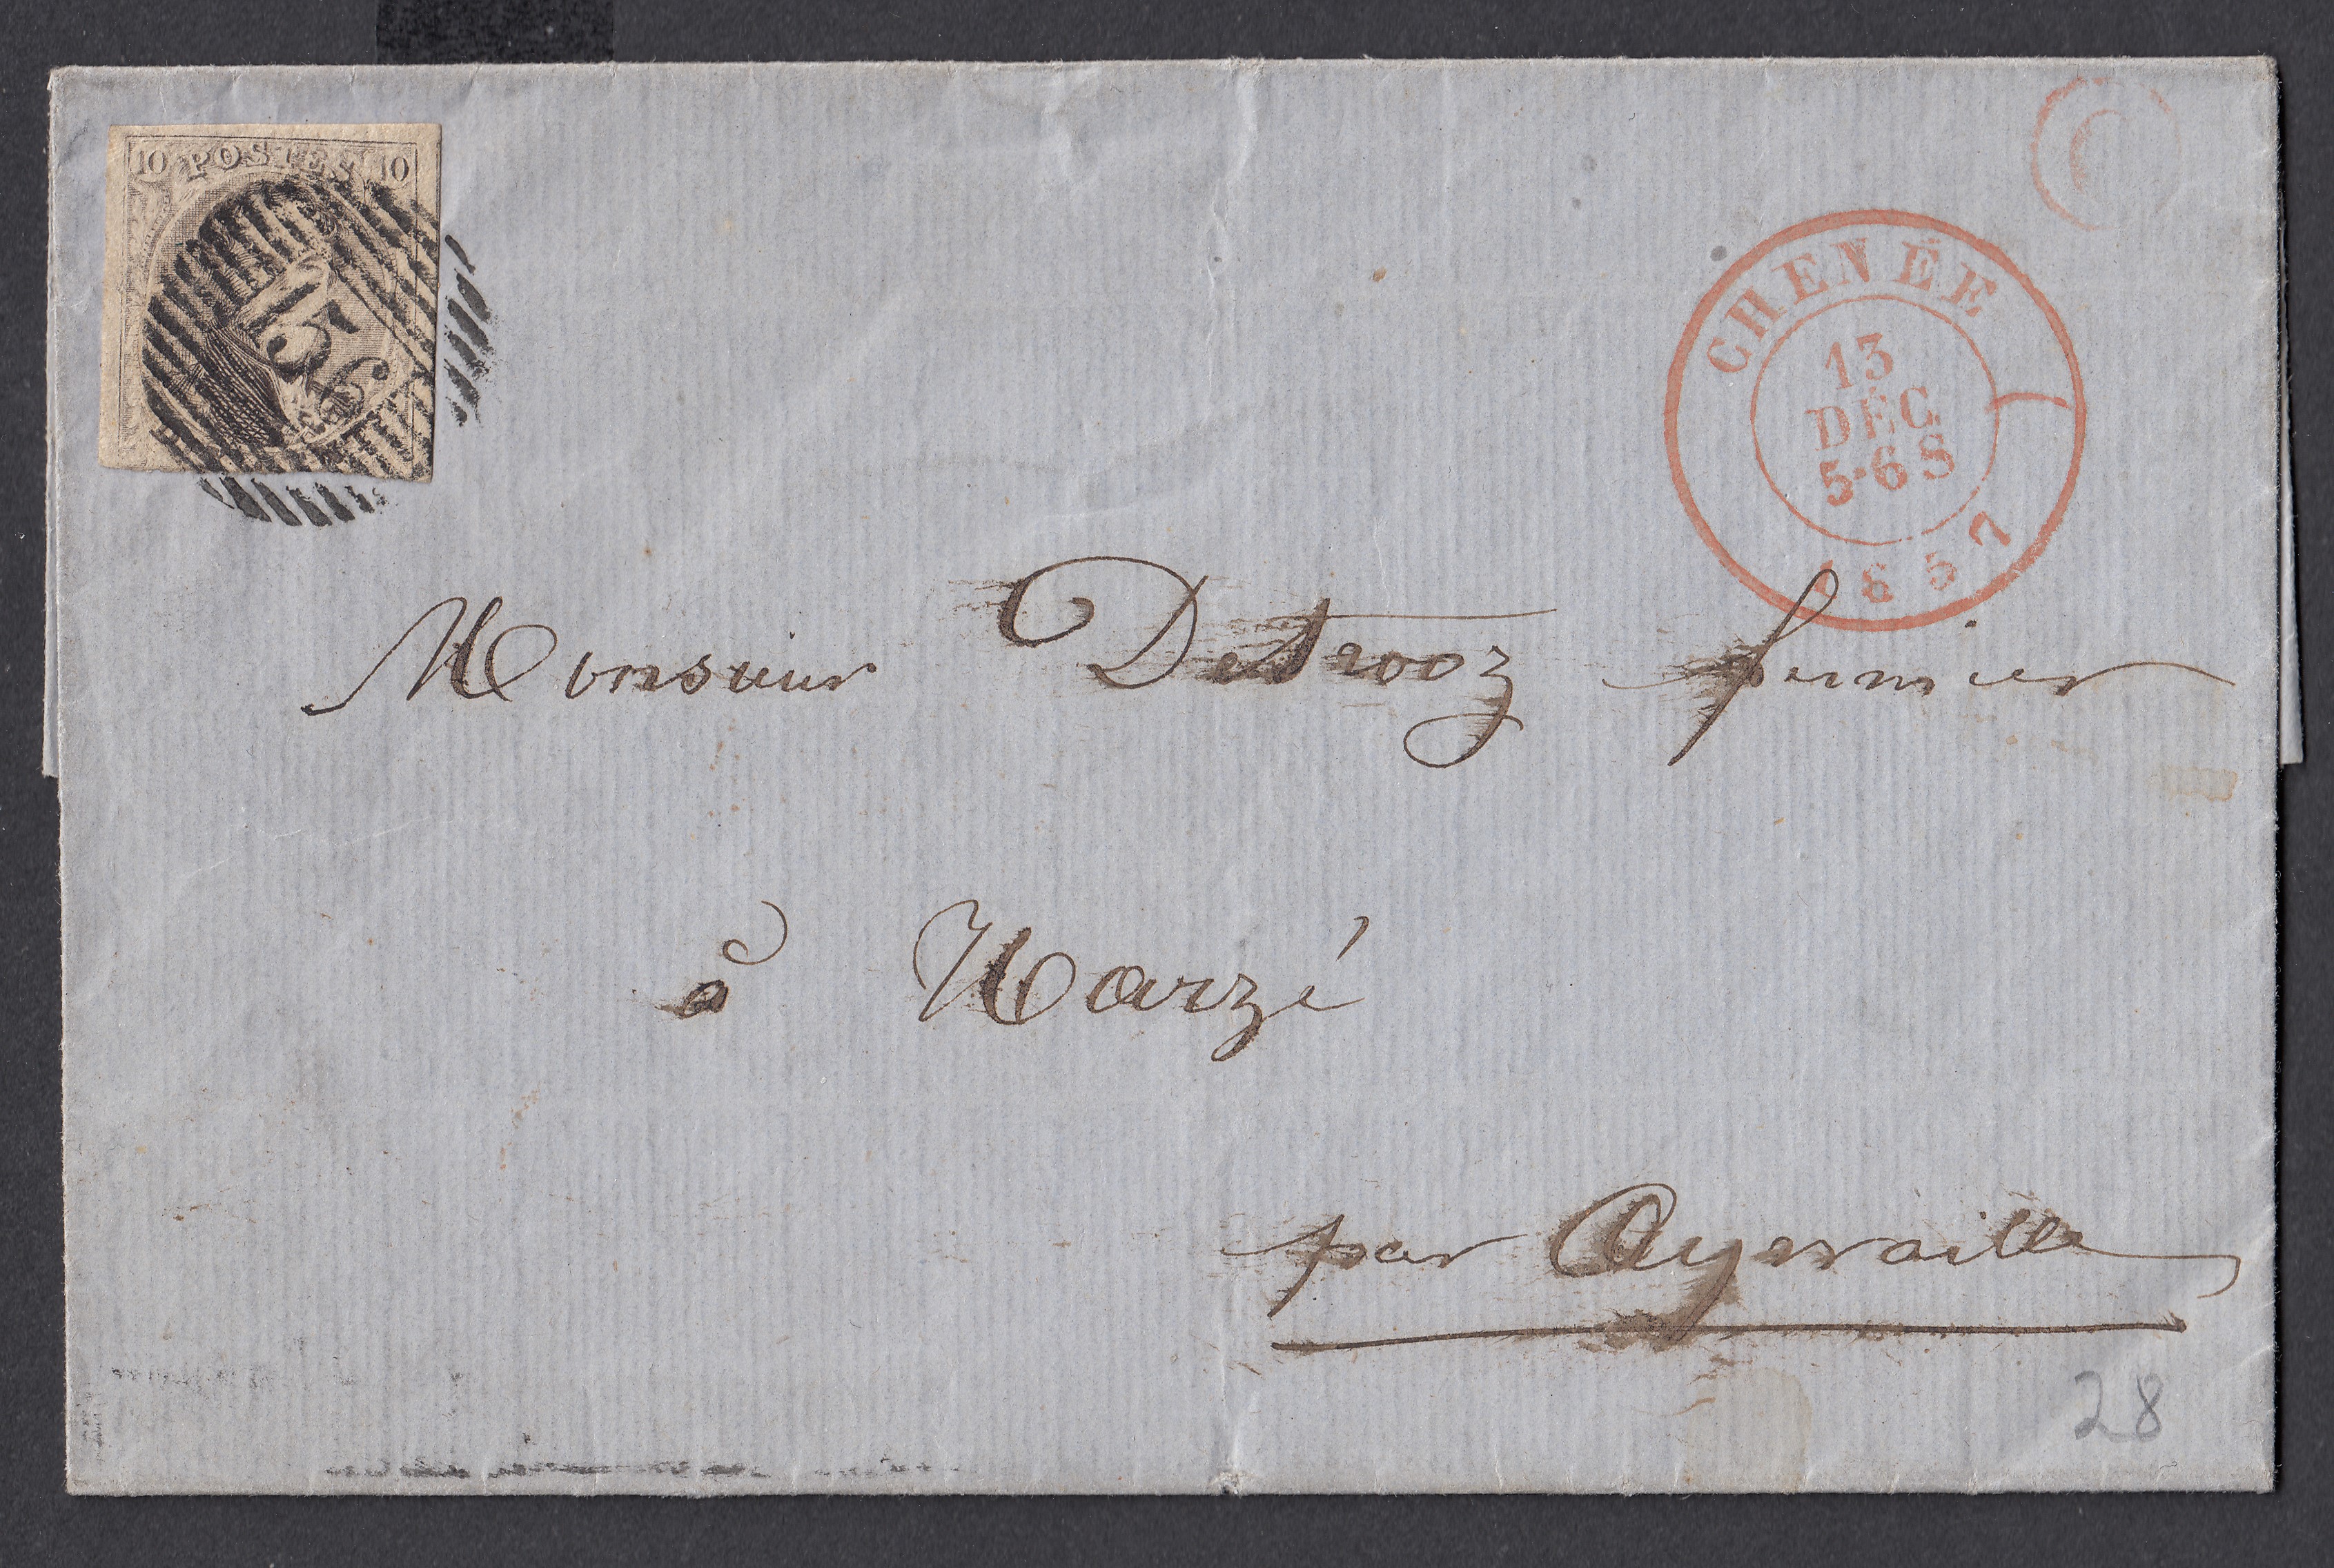 10 POSTES 10
56
C
CHENÉE
13
DÉC
5-6 S
1857
Monsieur Detrooz fermier
à Harzé
par Ayevaille
28